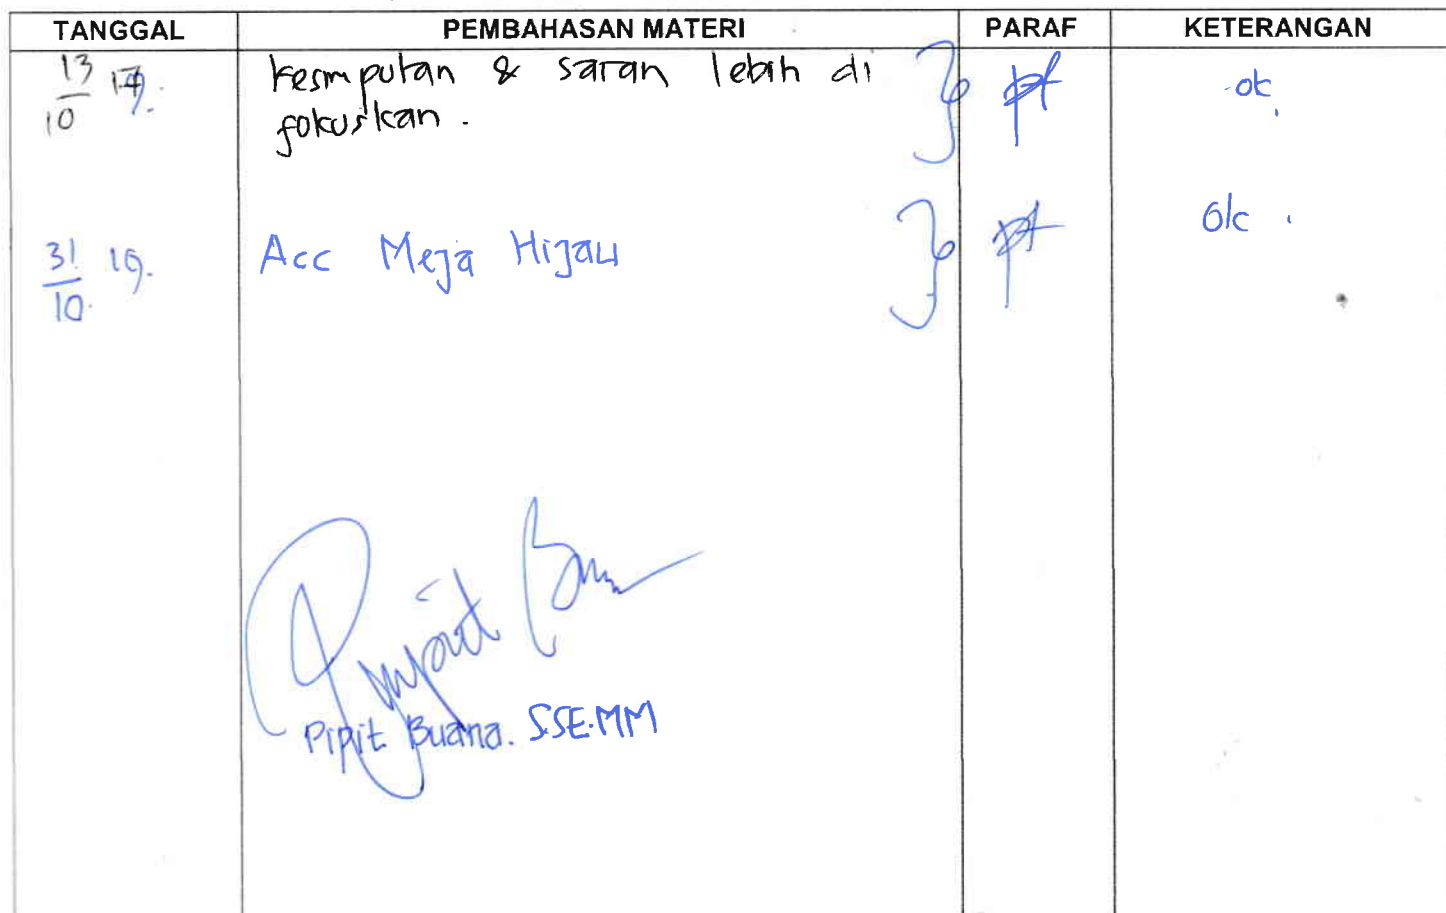 TANGGAL PEMBAHASAN MATERI PARAF KETERANGAN
13/10 Kesmputan & saran lebih di ok
fokuskan.
31/10 19. Acc Meja Hijau Ok.
Pipit Buana. S.SE.MM